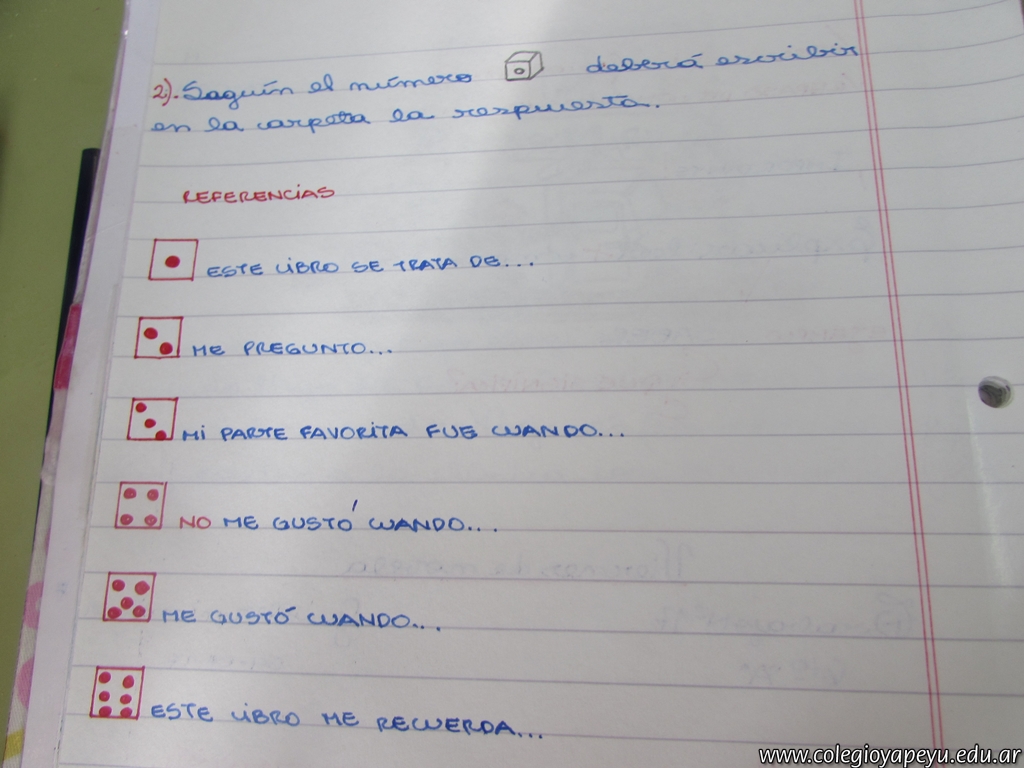 2). Según el número deberá escribir
en la carpeta la respuesta.
REFERENCIAS
ESTE LIBRO SE TRATA DE...
ME PREGUNTO...
MI PARTE FAVORITA FUE CUANDO...
NO ME GUSTÓ CUANDO...
ME GUSTÓ CUANDO...
ESTE LIBRO ME RECUERDA...
www.colegioyapeyu.edu.ar